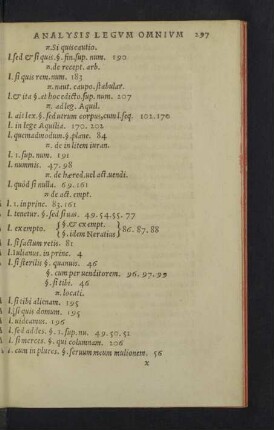 ANALYSIS LEGVM OMNIVM 297
n. Si quis cautio.
l. sed & si quis. §. fin. sup. num. 190
n. de recept. arb.
l. si quis rem. num. 183
n. naut. caupo. stabular.
l. & ita §. et hoc edicto. sup. num. 207
n. ad leg. Aquil.
l. ait lex. §. sed utrum corpus, cum l. seq. 102. 170
l. in lege Aquilia. 170. 202
l. quemadmodum. §. plane. 84
n. de in litem iuran.
l. 1. sup. num. 191
l. nummis. 47. 98
n. de hæred. uel act. uendi.
l. quòd si nulla. 69. 161
n. de act. empt.
l. 1. in princ. 83. 161
l. tenetur. §. sed si uas. 49. 54. 55. 77
l. ex empto. { §. & ex empt. §. idem Neratius } 86. 87. 88
l. si factum retis. 81
l. Iulianus. in princ. 4
l. si sterilis §. quamuis. 46
§. cum per uenditorem. 96. 97. 99
§. si tibi. 46
n. locati.
l. si tibi alienam. 195
l. si quis domum. 195
l. uideamus. 196
l. sed addes. §. 1. sup. nu. 49. 50. 51
l. si merces. §. qui columnam. 206
l. cum in plures. §. seruum meum mulionem. 56
x